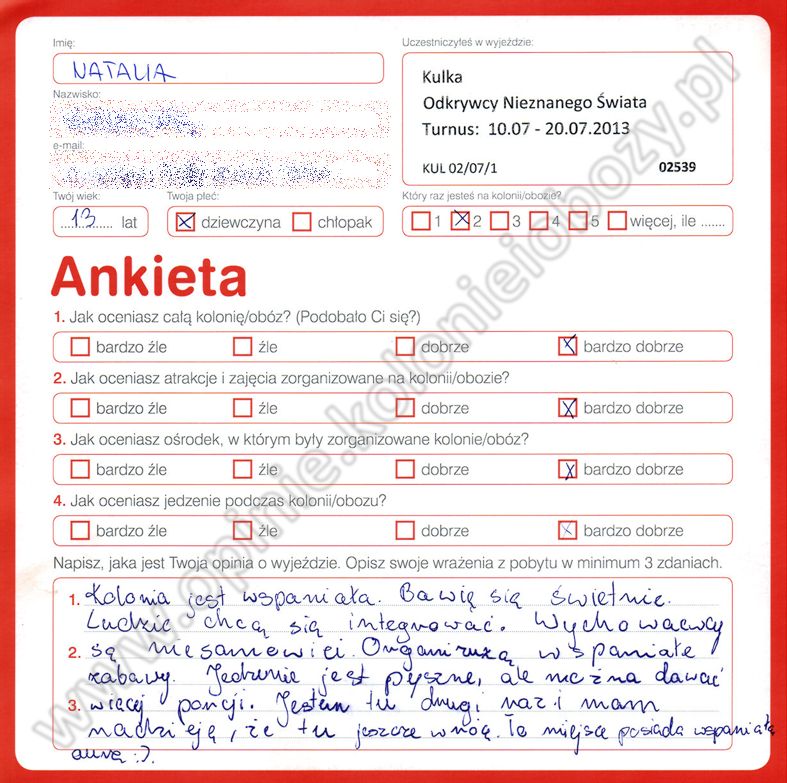 Imię:
NATALIA
Nazwisko:
e-mail:
Twój wiek:
13 lat
Twoja płeć:
dziewczyna chłopak
Uczestniczyłeś w wyjeździe:
Kulka
Odkrywcy Nieznanego Świata
Turnus: 10.07 - 20.07.2013
KUL 02/07/1 02539
Który raz jesteś na kolonii/obozie?
1 2 3 4 5 więcej, ile .......
Ankieta
1. Jak oceniasz całą kolonię/obóz? (Podobało Ci się?)
bardzo źle źle dobrze bardzo dobrze
2. Jak oceniasz atrakcje i zajęcia zorganizowane na kolonii/obozie?
bardzo źle źle dobrze bardzo dobrze
3. Jak oceniasz ośrodek, w którym były zorganizowane kolonie/obóz?
bardzo źle źle dobrze bardzo dobrze
4. Jak oceniasz jedzenie podczas kolonii/obozu?
bardzo źle źle dobrze bardzo dobrze
Napisz, jaka jest Twoja opinia o wyjeździe. Opisz swoje wrażenia z pobytu w minimum 3 zdaniach.
1. Kolonia jest wspaniała. Bawię się świetnie.
Ludzie chcą się integrować. Wychowawcy
2. są niesamowici. Organizują wspaniałe
zabawy. Jedzenie jest pyszne, ale można dawać
3. więcej porcji. Jestem tu drugi raz i mam
nadzieję, że tu jeszcze wrócę. To miejsce posiada wspaniałą
aurę :).
www.opinie.kolonieiobozy.pl